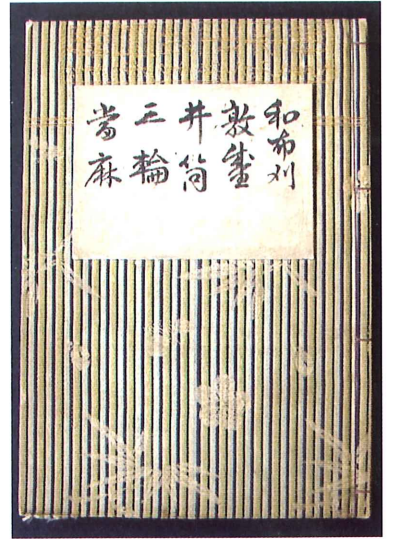 和布刈
敦盛
井筒
三輪
當麻